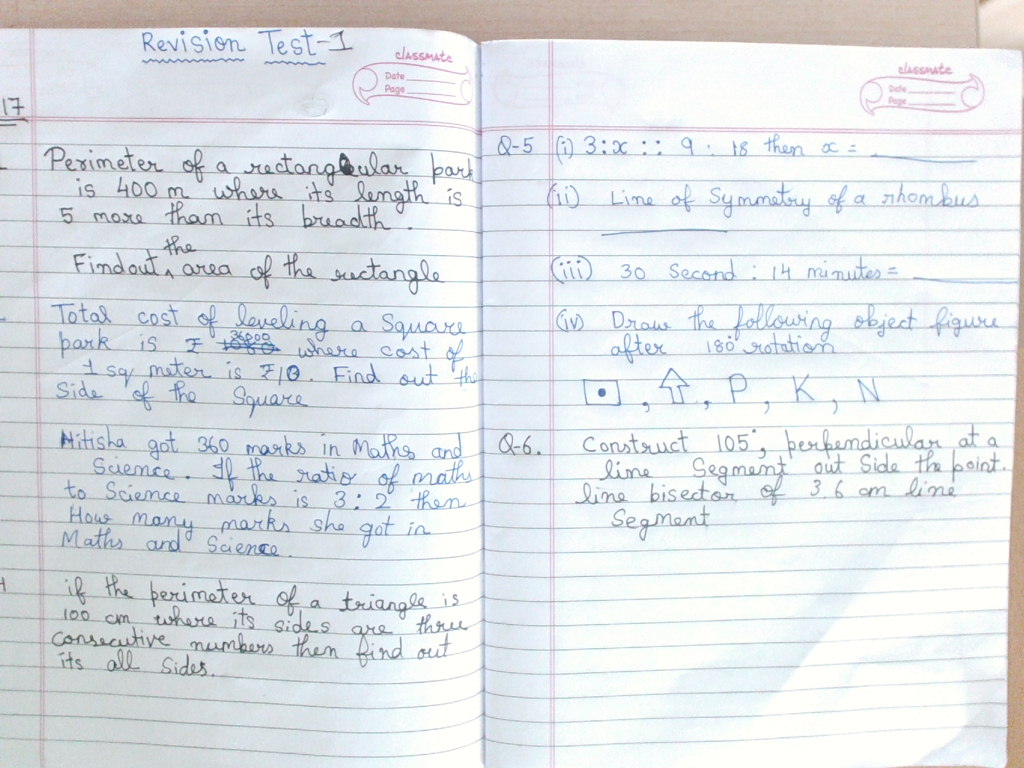 Revision Test-1
classmate
Date
Page
17
Perimeter of a rectangular park
is 400 m where its length is
5 more than its breadth.
Findout the area of the rectangle
Total cost of leveling a Square
park is ₹ 36000 where cost of
1 sq meter is ₹10. Find out the
Side of the Square
Nitisha got 360 marks in Maths and
Science. If the ratio of maths
to Science marks is 3:2 then
How many marks she got in
Maths and Science.
if the perimeter of a triangle is
100 cm where its sides are three
consecutive numbers then find out
its all sides.
classmate
Date
Page
Q-5 (i) 3:x :: 9 : 18 then x =
(ii) Line of Symmetry of a rhombus
(iii) 30 Second : 14 minutes =
(iv) Draw the following object figure
after 180° rotation
, , P, K, N
Q-6. Construct 105°, perpendicular at a
line Segment out Side the point.
line bisector of 3.6 cm line
Segment